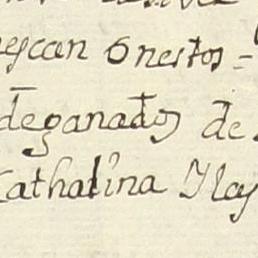 escan onestos =
de ganados de
Cathalina Ylay